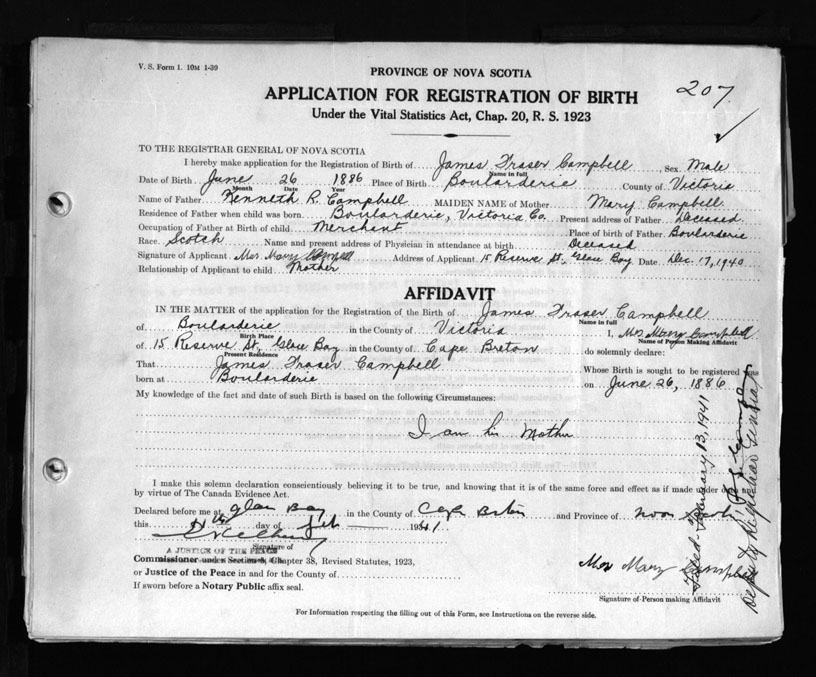 V. S. Form 1. 10M 1-39
207
PROVINCE OF NOVA SCOTIA
APPLICATION FOR REGISTRATION OF BIRTH
Under the Vital Statistics Act, Chap. 20, R. S. 1923
TO THE REGISTRAR GENERAL OF NOVA SCOTIA
I hereby make application for the Registration of Birth of James Fraser Campbell, Sex Male
Name in full
Date of Birth June 26 1886 Place of Birth Boularderie County of Victoria
Month Date Year
Name of Father Kenneth R. Campbell MAIDEN NAME of Mother Mary Campbell
Residence of Father when child was born Boularderie, Victoria Co. Present address of Father Deceased
Occupation of Father at Birth of child Merchant Place of birth of Father Boularderie
Race Scotch Name and present address of Physician in attendance at birth Deceased
Signature of Applicant Mrs. Mary Campbell Address of Applicant 15 Reserve St., Glace Bay Date Dec. 17, 1940
Relationship of Applicant to child Mother
AFFIDAVIT
IN THE MATTER of the application for the Registration of the Birth of James Fraser Campbell
Name in full
of Boularderie in the County of Victoria I, Mrs Mary Campbell
Birth Place
Name of Person Making Affidavit
of 15 Reserve St., Glace Bay in the County of Cape Breton do solemnly declare:
Present Residence
That James Fraser Campbell Whose Birth is sought to be registered was
born at Boularderie on June 26, 1886
My knowledge of the fact and date of such Birth is based on the following Circumstances:
I am his Mother
I make this solemn declaration conscientiously believing it to be true, and knowing that it is of the same force and effect as if made under oath and
by virtue of The Canada Evidence Act.
Declared before me at Glace Bay in the County of Cape Breton and Province of Nova Scotia
this day of Feb 1941
Signature of
A JUSTICE OF THE PEACE
Commissioner under Section 8, Chapter 38, Revised Statutes, 1923,
or Justice of the Peace in and for the County of
If sworn before a Notary Public affix seal.
Mrs Mary Campbell
Signature of Person making Affidavit
For Information respecting the filling out of this Form, see Instructions on the reverse side.
Filed February 13, 1941
Deputy Registrar General